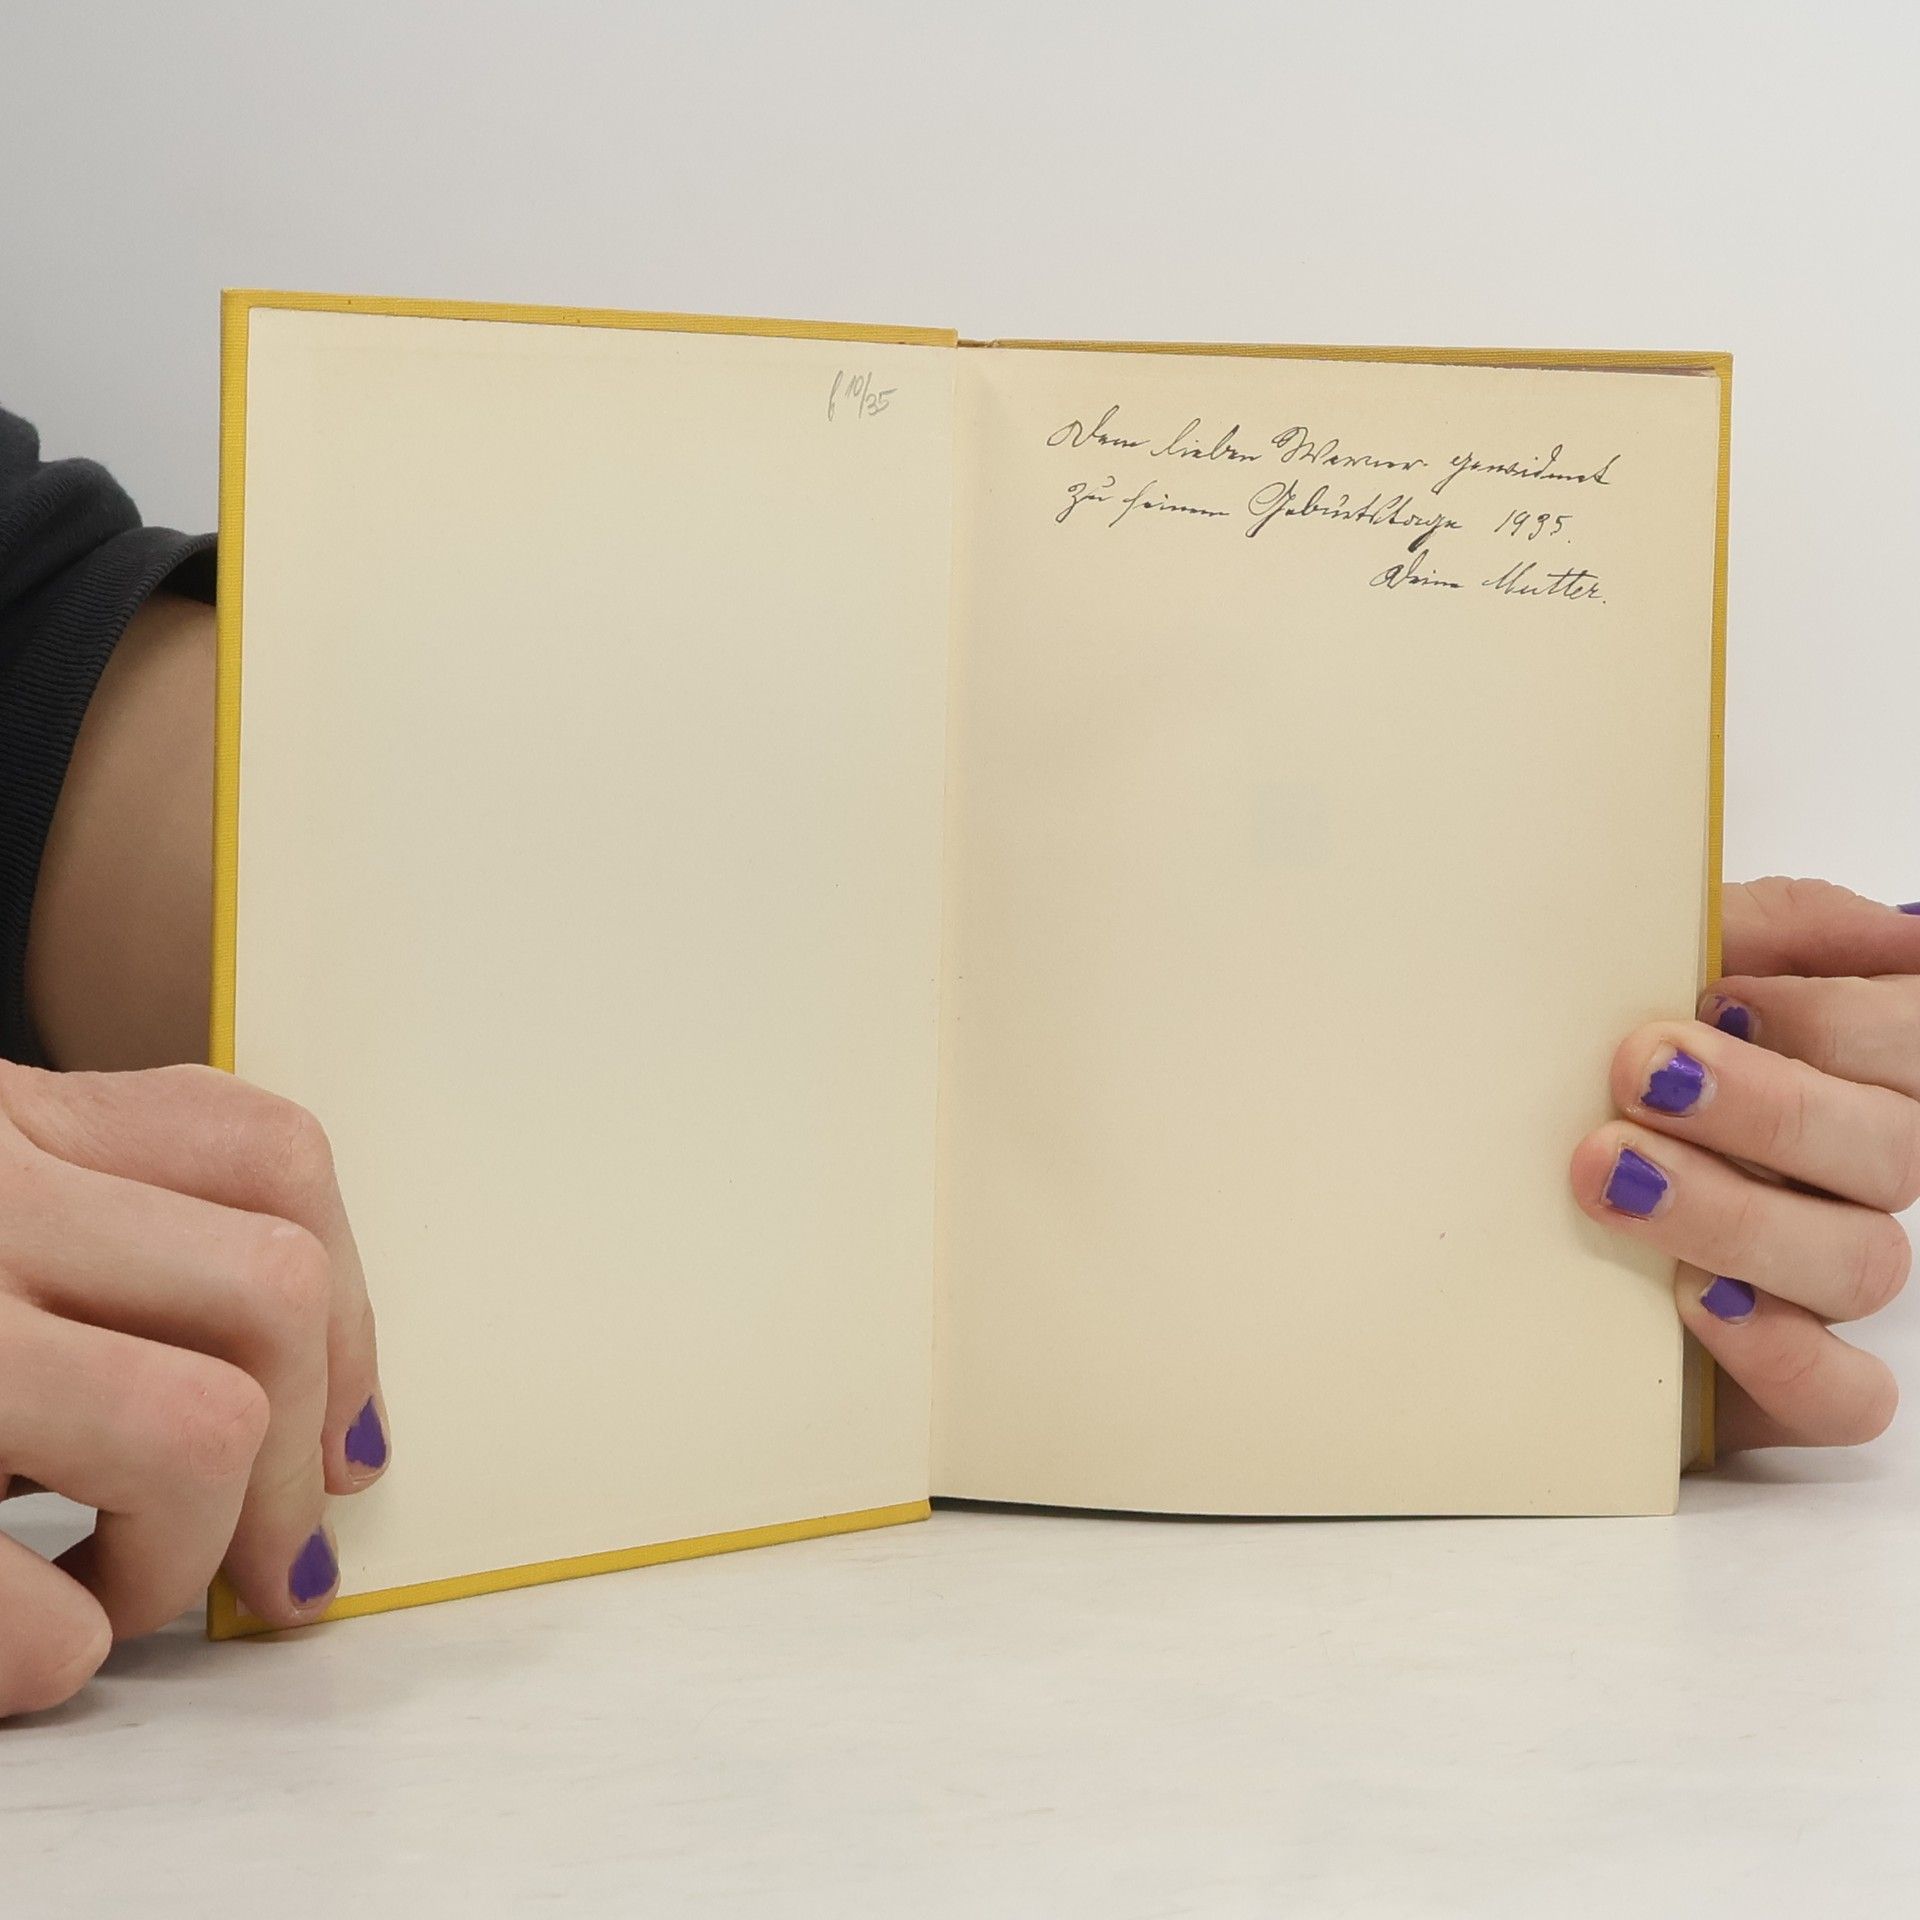 10/35
Dem lieben Werner gewidmet
zu seinem Geburtstage 1935.
Deine Mutter.